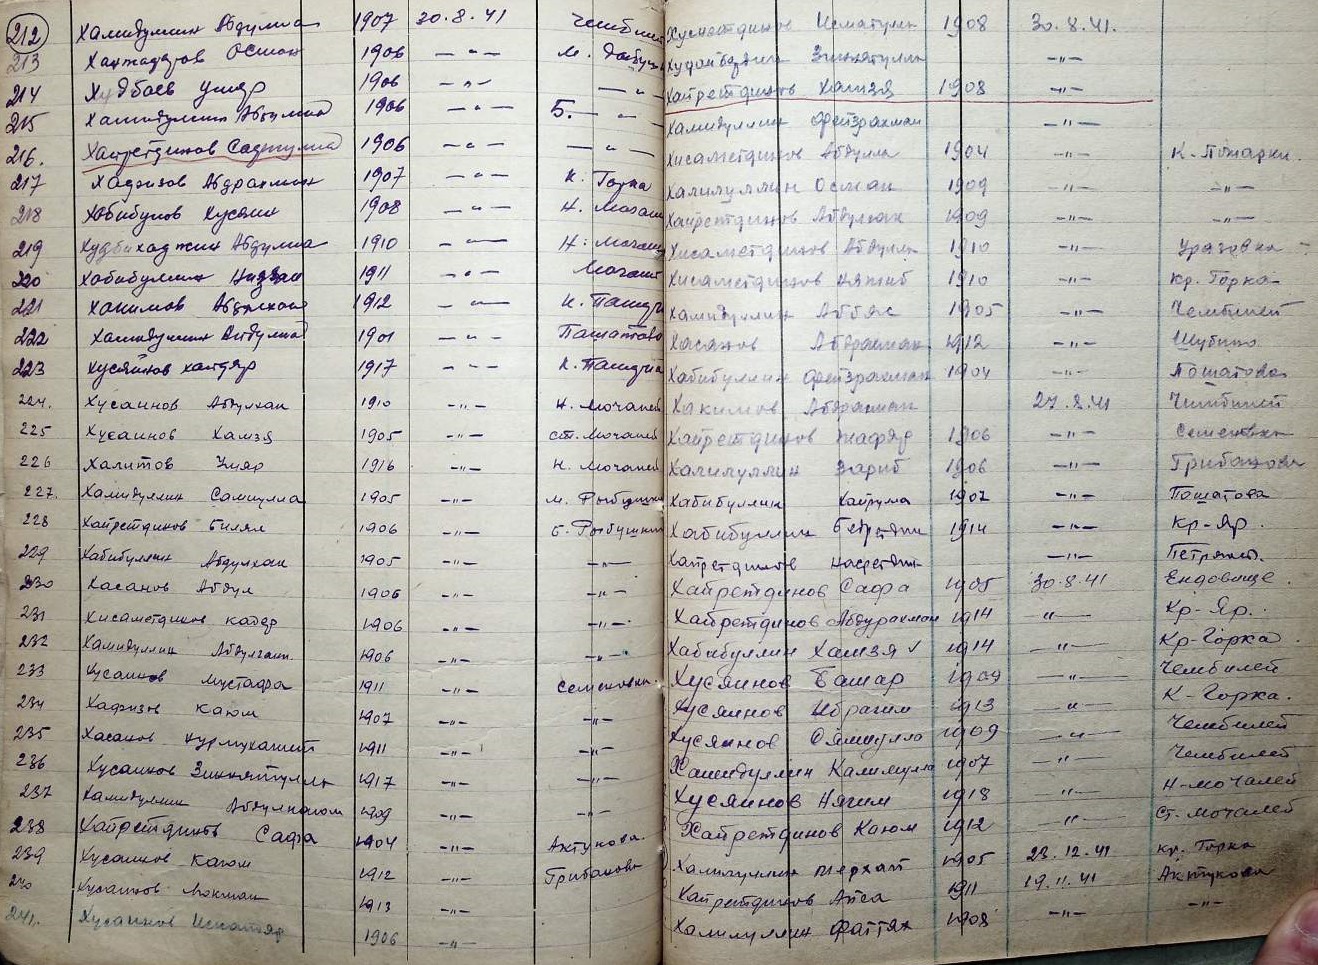 212 Хамидуллин Абдулла 1907 30.8.41
213 Осман 1906 -"-
214 Худбаев Умяр 1906 -"- -"-
215 Хамидуллин 1906 -"- Б. -"-
216. Хайретдинов Садтулла 1906 -"- -"-
217 Хафизов Абдрахман 1907 -"- К. Горка
218 Хабибулов Хусяин 1908 -"- Н. Мочалей
219 Абдулла 1910 -"- Н. Мочалей
220 Хабибуллин 1911 -"- Мочалей
221 Хакимов 1912 -"- К. Пашдт
222 Хамидуллин 1901 -"- Пошатово
223 Хусяинов Хайдяр 1917 -"-
224. Хусаинов Абдулхан 1910 -"- Н. Мочалей
225 Хусаинов Хамзя 1905 -"- ст. Мочалей
226 Халитов Умяр 1916 -"- Н. Мочалей
227. Хамидуллин Самиулла 1905 -"- М. Рыбушкин
228 Хайретдинов Билял 1906 -"- Б. Рыбушкин
229 Хабибуллин Абдулхан 1905 -"- -"-
230 Хасанов Абдул 1906 -"- -"-
231 Хисаметдинов Кадер 1906 -"- -"-
232 Хамидуллин Абдулганн 1906 -"- -"-
233 Хусаинов Мустафа 1911 -"- Семеновка.
234 Хафизов Каюм 1907 -"- -"-
235 Хасанов Нурмухамит 1911 -"- -"-
236 Хусаинов Зиннятулла 1917 -"- -"-
237 Хамидуллин Абдулкаюм 1909 -"- -"-
238 Хайретдинов Сафа 1904 -"- Актуково.
239 Хусаинов Каюм 1912 -"- Грибаново
240 Хусаинов Локман 1913 -"-
241. Хусаинов Исмагяр 1906 -"-
Хусметдинов Исматулла 1908 30.8.41.
Зиннятулла -"-
Хайретдинов Хамзя 1908 -"-
Хамидуллин Фейзрахман -"-
Хисаметдинов Абдулла 1904 -"- К-Пожарки.
Халилуллин Осман 1909 -"- -"-
Хайретдинов Абдулхан 1909 -"- -"-
Хисаметдинов Абдулла 1910 -"- Уразовка
Хисаметдинов Няжиб 1910 -"- Кр. Горка
Хамидуллин Аббяс 1905 -"- Чембилей
Хасанов Абдрахман 1912 -"- Шубино
Хабибуллин Фейзрахман 1904 -"- Пошатово
Хакимов Абдрахман 27.8.41 Чембилей
Хайретдинов Жафяр 1906 -"- Семеновка
Халилуллин Зариф 1906 -"- Грибаново
Хабибуллин Хайрула 1907 -"- Пошатова
Хабибуллин Бедретдин 1914 -"- Кр-Яр.
Хайретдинов Насретдин -"- Петрякс.
Хайретдинов Сафа 1905 30.8.41 Ендовище.
Хайретдинов Абдурахман 1914 -"- Кр-Яр.
Хабибуллин Хамзя ✓ 1914 -"- Кр-Горка.
Хусяинов Башар 1909 -"- Чембилей
Хусяинов Ибрагим 1913 -"- К-Горка.
Хусяинов Сямиулло 1909 -"- Чембилей
Хамидуллин Калимулла 1907 -"- Чембилей
Хусяинов Нягим 1918 -"- Н-Мочалей
Хайретдинов Каюм 1912 -"- Ст. Мочалей
Халилуллин Ферхат 1905 23.12.41 Кр. Горка
Хайретдинов Аиса 1911 19.11.41 Актуково
Халилуллин Фаттях 1908 -"- -"-